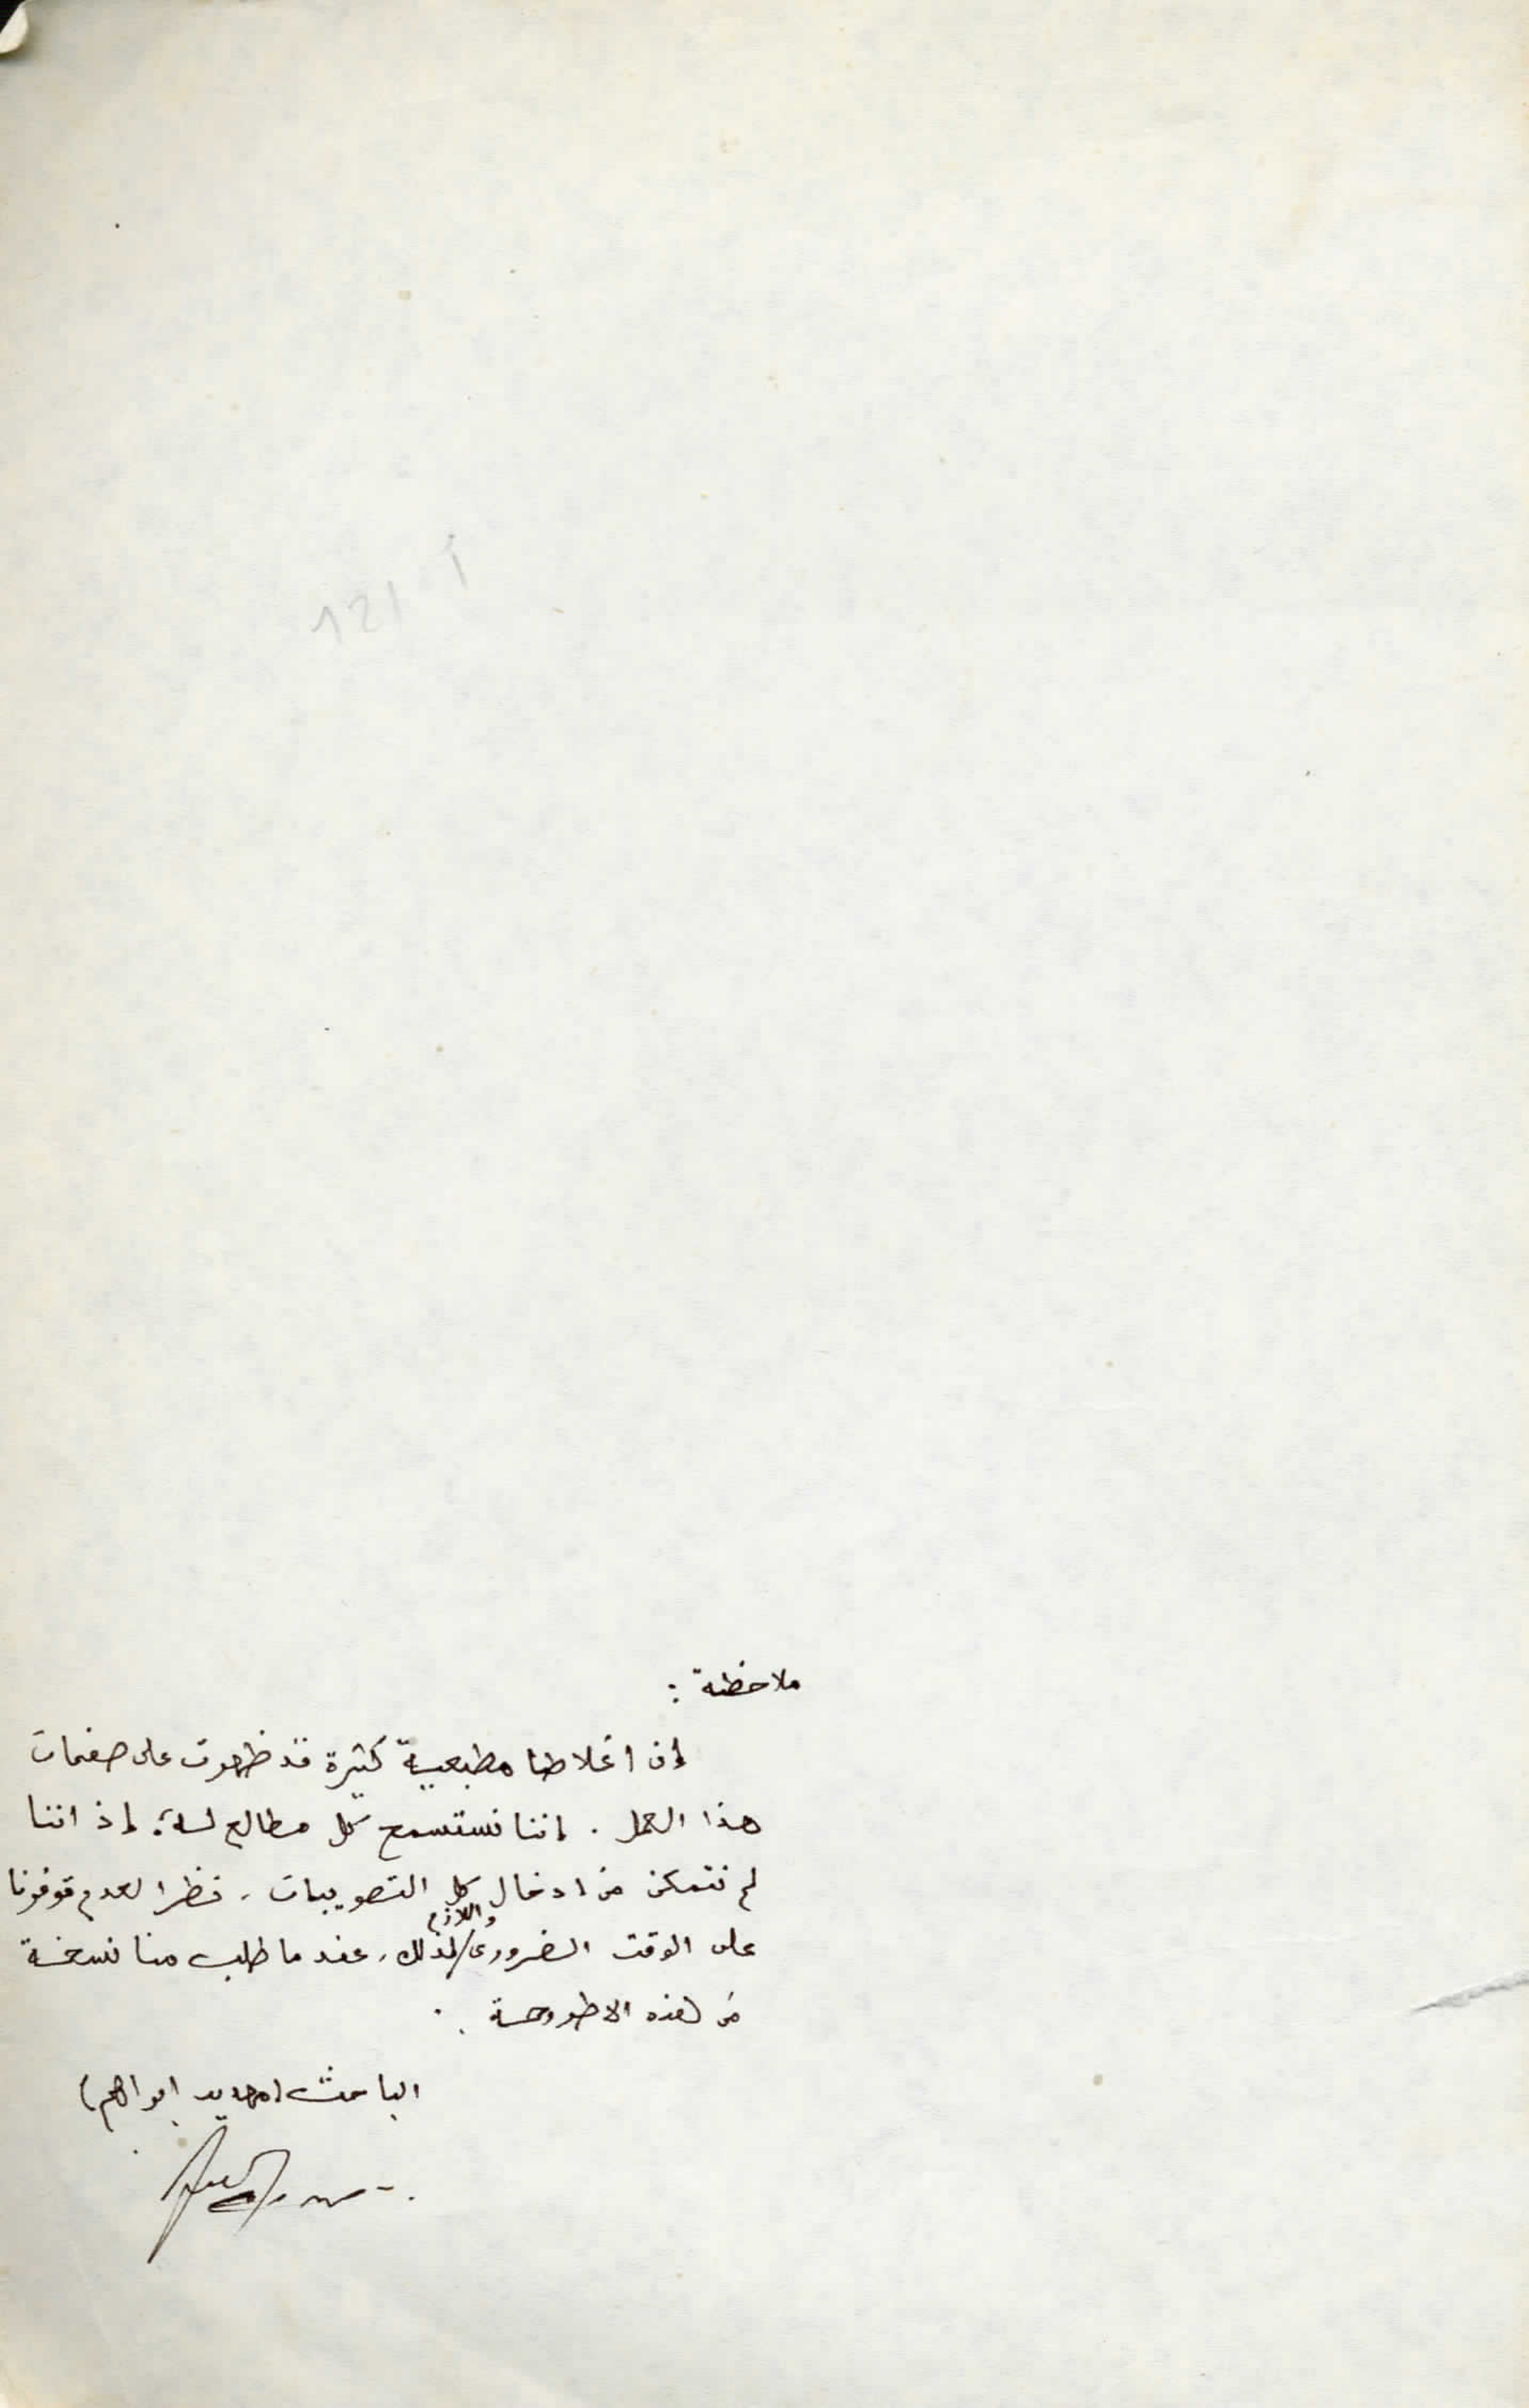 ملاحظة :
إن اغلاطا مطبعية كثيرة قد ظهرت على صفحات
هذا العمل . اننا نستسمح كل مطالع له، إذ اننا
لم نتمكن من ادخال كل التصويبات، نظرا لعدم توفرنا
على الوقت الضروري واللازم لذلك، عندما طلب منا نسخة
من هذه الاطروحة .
الباحث ( ابراهيم)